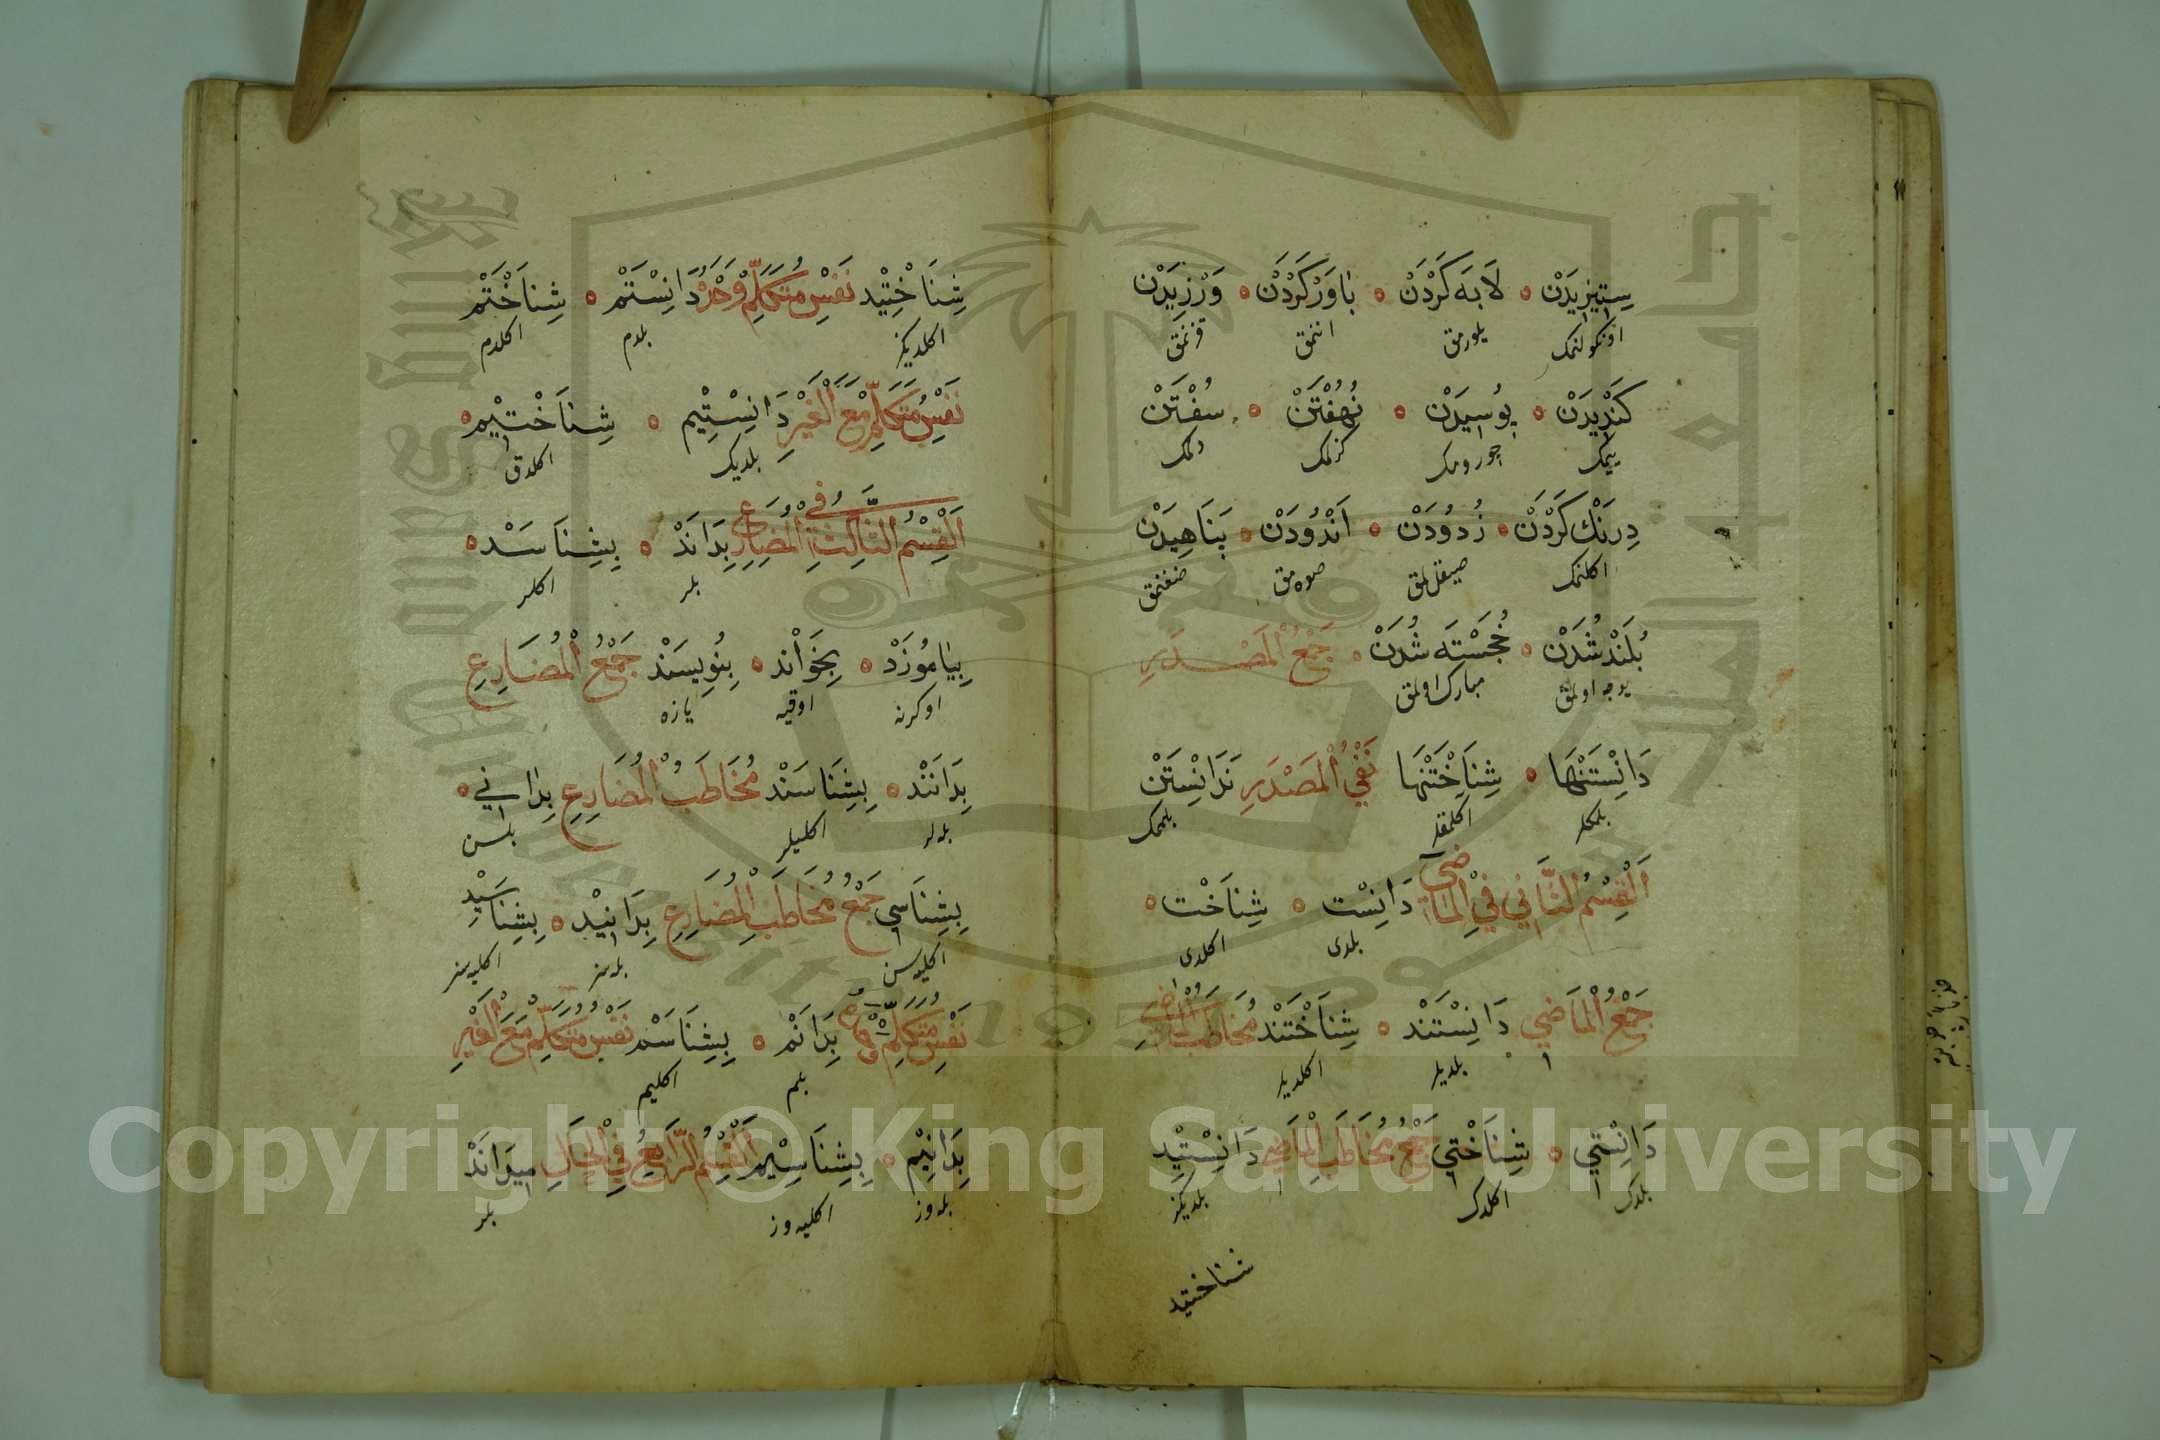 سِتِيزِيدَنْ ٥ لَابَه كَرْدَنْ ٥ بَاوَرْ كَرْدَنْ ٥ وَرْزِيدَنْ
اوكولنمك يلورمق اننمق قزنمق
كَنْدِيدَنْ ٥ پُوسِيدَنْ ٥ نُهُفْتَنْ ٥ سُفْتَنْ
چورومك كزلمك دلمك
دِرَنْك كَرْدَنْ ٥ زُدُودَنْ ٥ اَنْدُودَنْ ٥ پَنَاهِيدَنْ
اكلنمك صيقللمق صوه مق صغنمق
بُلَنْد شُدَنْ ٥ خُجَسْتَه شُدَنْ ٥ جَمْعُ الْمَصْدَرِ
يوجه اولمق مبارك اولمق
دَانِسْتَنْهَا ٥ شِنَاخْتَنْهَا نَفْيُ الْمَصْدَرِ نَدَانِسْتَنْ
بلمكلر اكلمقلر بلممك
اَلْقِسْمُ الثَّانِي فِي الْمَاضِي دَانِسْت ٥ شِنَاخْت ٥
بلدى اكلدى
جَمْعُ الْمَاضِي دَانِسْتَنْد ٥ شِنَاخْتَنْد مُخَاطَبُ الْمَاضِي
بلديلر اكلديلر
دَانِسْتِي ٥ شِنَاخْتِي جَمْعُ مُخَاطَبِ الْمَاضِي دَانِسْتِيْد
بلدك اكلدك بلديكز
شناختيد
شِنَاخْتِيْد نَفْسِ مُتَكَلِّمْ وَحْدَهُ دَانِسْتَمْ ٥ شِنَاخْتَمْ
اكلديكز بلدم اكلدم
نَفْسِ مُتَكَلِّمْ مَعَ الْغَيْرِ دَانِسْتِيْم ٥ شِنَاخْتِيْم ٥
بلديك اكلدق
اَلْقِسْمُ الثَّالِثُ فِي الْمُضَارِعِ بِدَانَدْ ٥ بِشِنَاسَدْ ٥
بلر اكلر
بِيَامُوزَدْ ٥ بِخَوْانَد ٥ بِنُوِيسَنْد جَمْعُ الْمُضَارِعِ
اوكرنه اوقيه يازه
بِدَانَنْد ٥ بِشِنَاسَنْد مُخَاطَبُ الْمُضَارِعِ بِدَانِي ٥
بله لر اكليلر بلسن
بِشِنَاسِي جَمْعُ مُخَاطَبِ الْمُضَارِعِ بِدَانِيْد ٥ بِشِنَاسَيِدْ
اكليه سن بله سز اكليه سز
نَفْسِ مُتَكَلِّمْ وَحْدَهُ بِدَانَمْ ٥ بِشِنَاسَمْ نَفْسِ مُتَكَلِّمْ مَعَ الْغَيْرِ
بلم اكليم
بِدَانِيْم ٥ بِشِنَاسِيْم اَلْقِسْمُ الرَّابِعُ فِي الْحَالِ مِيدَانَدْ
بله وز اكليه وز بلر
Copyright © King Saud University